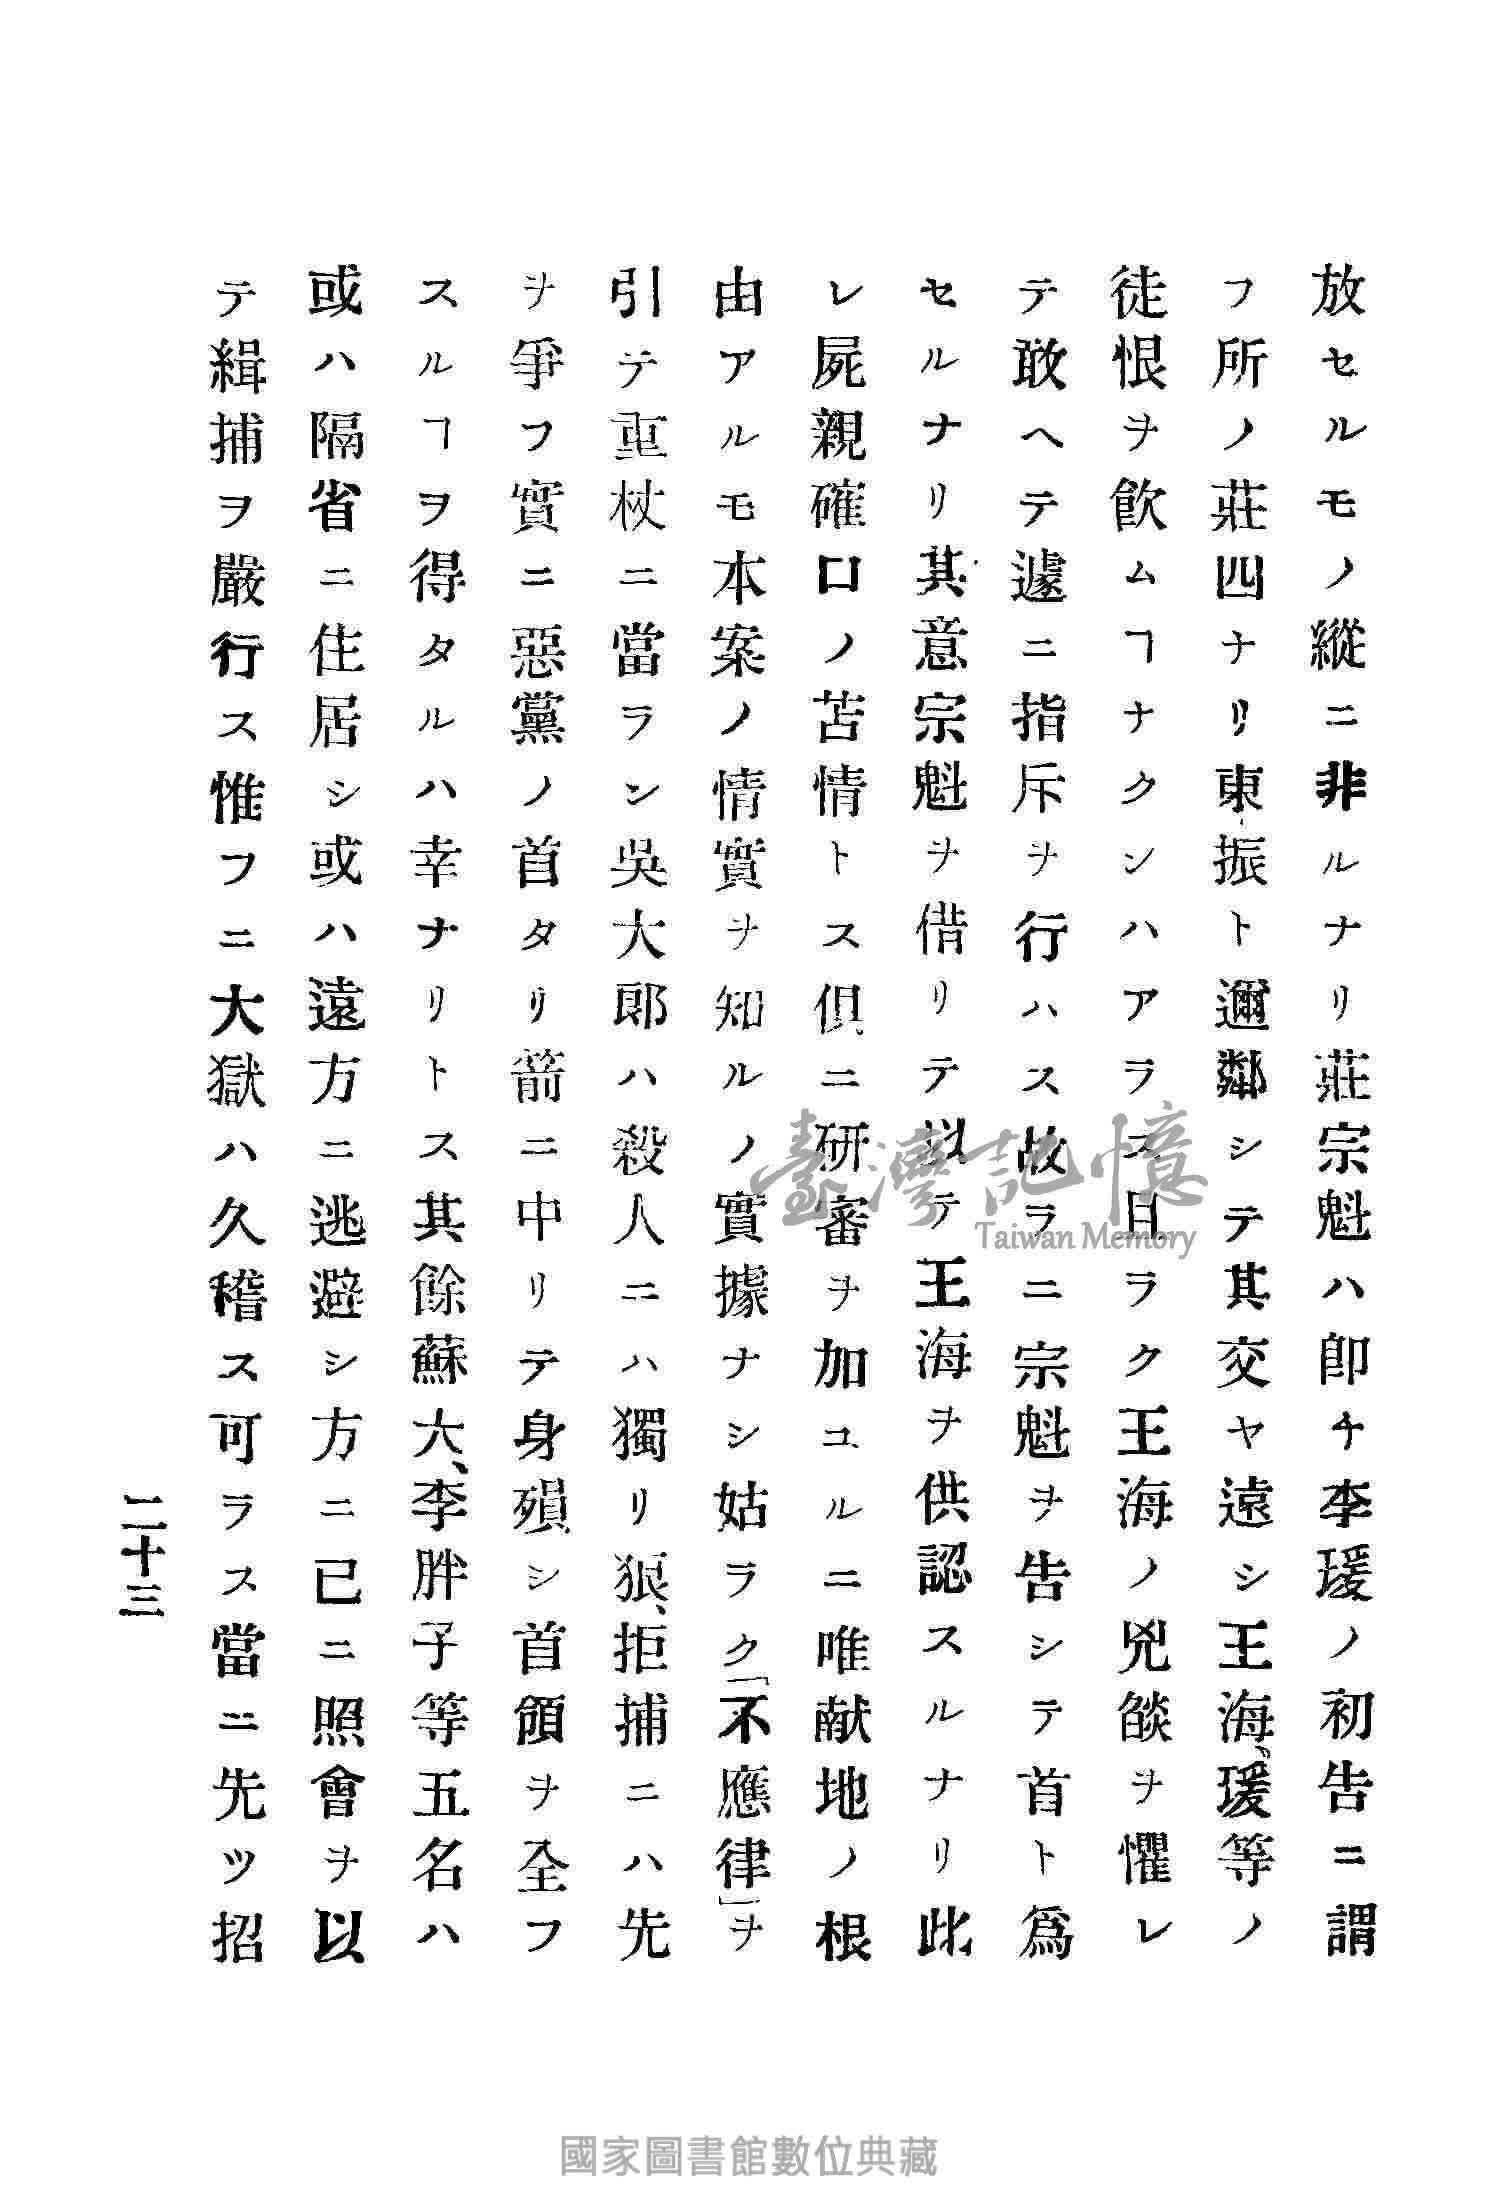 放セルモノ縱ニ非ルナリ莊宗魁ハ卽チ李瑗ノ初告ニ謂
フ所ノ莊四ナリ東振ト邇鄰シテ其交ヤ遠シ王海、瑗等ノ
徒恨ヲ飮ムヿナクンハアラス日ラク王海ノ兇燄ヲ懼レ
テ敢ヘテ遽ニ指斥ヲ行ハス故ラニ宗魁ヲ告シテ首ト爲
セルナリ其意宗魁ヲ借リテ以テ王海ヲ供認スルナリ此
レ屍親確口ノ苦情トス俱ニ研審ヲ加ユルニ唯献地ノ根
由アルモ本案ノ情實ヲ知ルノ實據ナシ姑ラク「不應律」ヲ
引テ重杖ニ當ラン吳大郎ハ殺人ニハ獨リ狠、拒捕ニハ先
ヲ爭フ實ニ惡黨ノ首タリ箭ニ中リテ身殞シ首領ヲ全フ
スルヿヲ得タルハ幸ナリトス其餘蘇六、李胖子等五名ハ
或ハ隔省ニ住居シ或ハ遠方ニ逃避シ方ニ已ニ照會ヲ以
テ緝捕ヲ嚴行ス惟フニ大獄ハ久稽ス可ラス當ニ先ツ招
二十三
臺灣記憶
Taiwan Memory
國家圖書館數位典藏